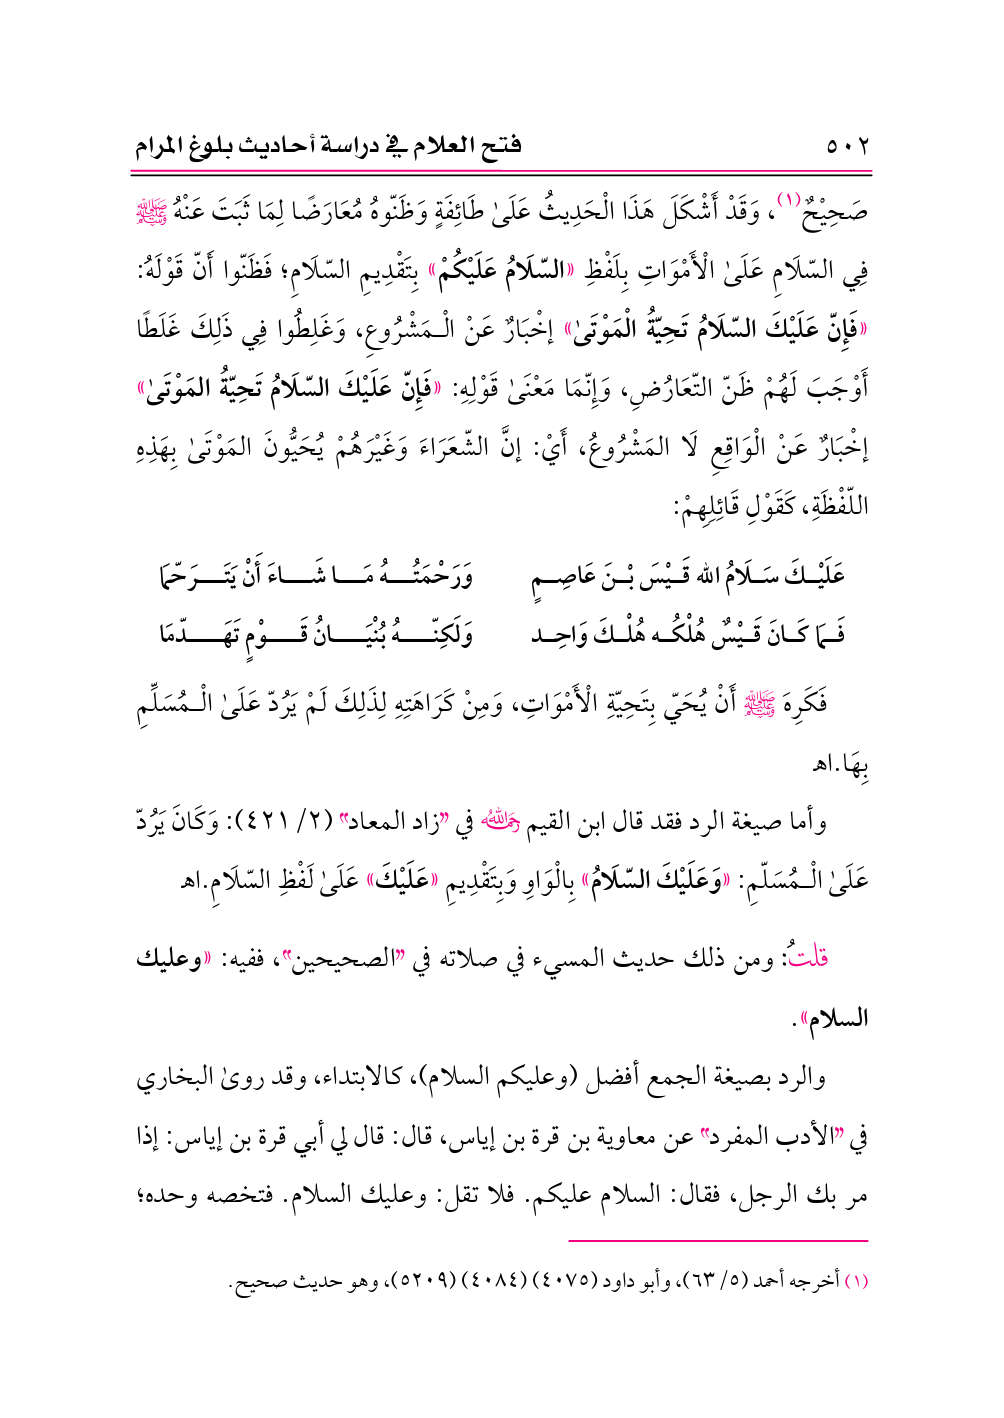 ٥٠٢ فتح العلام في دراسة أحاديث بلوغ المرام
صَحِيْحٌ(١)، وَقَدْ أَشْكَلَ هَذَا الْحَدِيثُ عَلَىٰ طَائِفَةٍ وَظَنّوهُ مُعَارَضًا لِمَا ثَبَتَ عَنْهُ ﷺ
فِي السّلَامِ عَلَىٰ الْأَمْوَاتِ بِلَفْظِ «السّلَامُ عَلَيْكُمْ» بِتَقْدِيمِ السّلَامِ؛ فَظَنّوا أَنّ قَوْلَهُ:
«فَإِنّ عَلَيْكَ السّلَامُ تَحِيّةُ الْمَوْتَىٰ» إخْبَارٌ عَنْ الْـمَشْرُوعِ، وَغَلِطُوا فِي ذَلِكَ غَلَطًا
أَوْجَبَ لَهُمْ ظَنّ التّعَارُضِ، وَإِنّمَا مَعْنَىٰ قَوْلِهِ: «فَإِنّ عَلَيْكَ السّلَامُ تَحِيّةُ المَوْتَىٰ»
إخْبَارٌ عَنْ الْوَاقِعِ لَا المَشْرُوعُ، أَيْ: إنَّ الشّعَرَاءَ وَغَيْرَهُمْ يُحَيُّونَ المَوْتَىٰ بِهَذِهِ
اللّفْظَةِ، كَقَوْلِ قَائِلِهِمْ:
عَلَيْـكَ سَـلَامُ الله قَـيْسَ بْـنَ عَاصِـمٍ وَرَحْمَتُـــهُ مَـــا شَـــاءَ أَنْ يَتَـــرَحّمَا
فَـمَا كَـانَ قَـيْسٌ هُلْكُـه هُلْـكَ وَاحِـد وَلَكِنّـــهُ بُنْيَـــانُ قَـــوْمٍ تَهَـــدّمَا
فَكَرِهَ ﷺ أَنْ يُحَيّ بِتَحِيّةِ الْأَمْوَاتِ، وَمِنْ كَرَاهَتِهِ لِذَلِكَ لَمْ يَرُدّ عَلَىٰ الْـمُسَلِّمِ
بِهَا.اهـ
وأما صيغة الرد فقد قال ابن القيم رحمه الله في "زاد المعاد" (٢/ ٤٢١): وَكَانَ يَرُدّ
عَلَىٰ الْـمُسَلّمِ: «وَعَلَيْكَ السّلَامُ» بِالْوَاوِ وَبِتَقْدِيمِ «عَلَيْكَ» عَلَىٰ لَفْظِ السّلَامِ.اهـ
قلتُ: ومن ذلك حديث المسيء في صلاته في "الصحيحين"، ففيه: «وعليك
السلام».
والرد بصيغة الجمع أفضل (وعليكم السلام)، كالابتداء، وقد روىٰ البخاري
في "الأدب المفرد" عن معاوية بن قرة بن إياس، قال: قال لي أبي قرة بن إياس: إذا
مر بك الرجل، فقال: السلام عليكم. فلا تقل: وعليك السلام. فتخصه وحده؛
(١) أخرجه أحمد (٥/ ٦٣)، وأبو داود (٤٠٧٥) (٤٠٨٤) (٥٢٠٩)، وهو حديث صحيح.